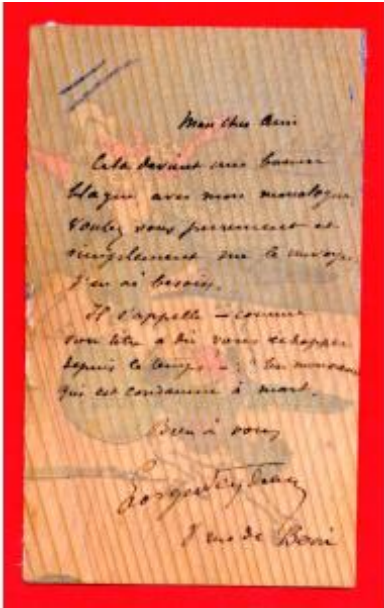 Mon cher Ami
Cela devient une bonne
blague avec mon monologue.
Voulez vous purement et
simplement me le renvoyer
j'en ai besoin.
Il s'appelle – comme
son titre a dû vous échapper
depuis le temps – : "Un monsieur
qui est condamné à mort.
Bien à vous
Georges Feydeau
rue de Berri